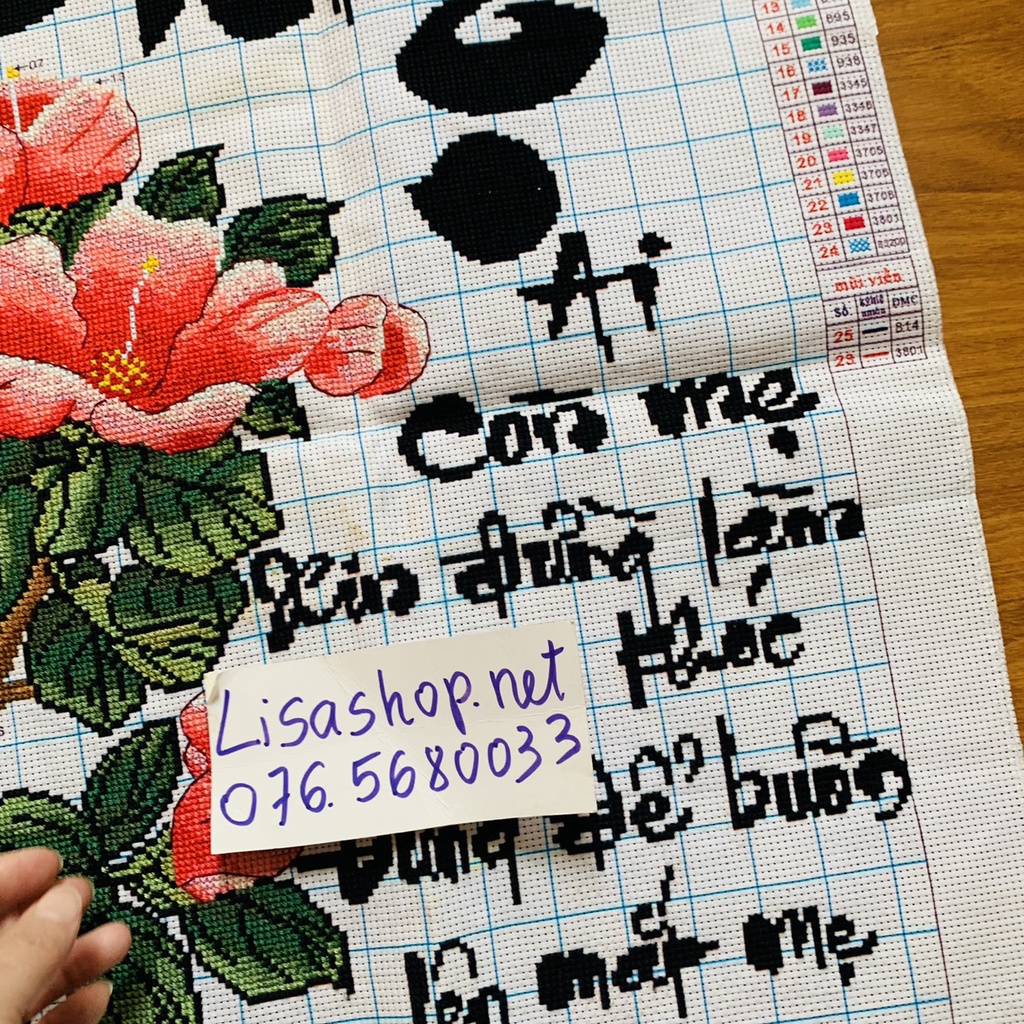 ←07
←13
13
14 895
15 935
16 936
17 3345
18 3346
19 3347
20 3705
21 3706
22 3708
23 3801
24
mũi viền
Số. DMC
25 814
23 3801
Ai
Còn mẹ
Xin đừng làm
Khóc
Lisashop.net
076.5680033
Đừng để buồn
lên mắt mẹ